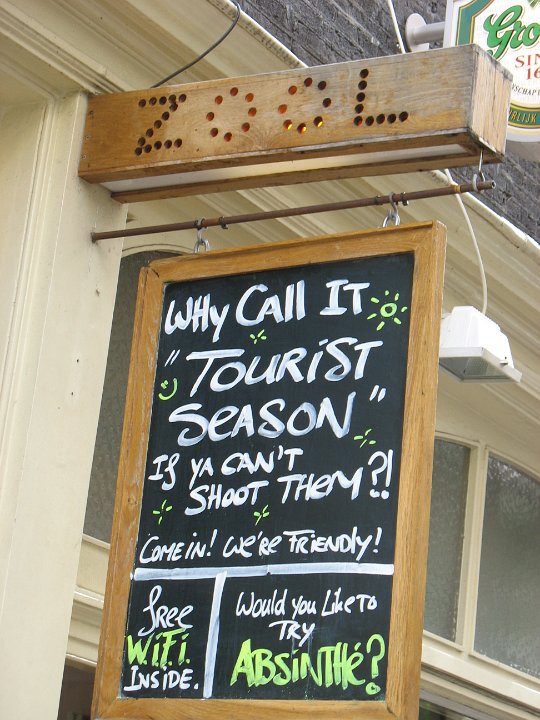 ZOCL
Gro
SIN
16
NSCHAP
RLIJK
WHY CALL IT
"TOURIST
SEASON"
IF YA CAN'T
SHOOT THEM?!
COME IN! WE'RE FRIENDLY!
free
W.i.F.i.
INSIDE.
WOULD YOU LIKE TO
TRY
ABSINTHÉ?